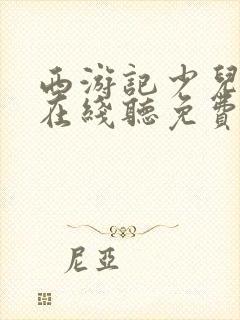 西游記少兒
在綫聽免費
尼亞